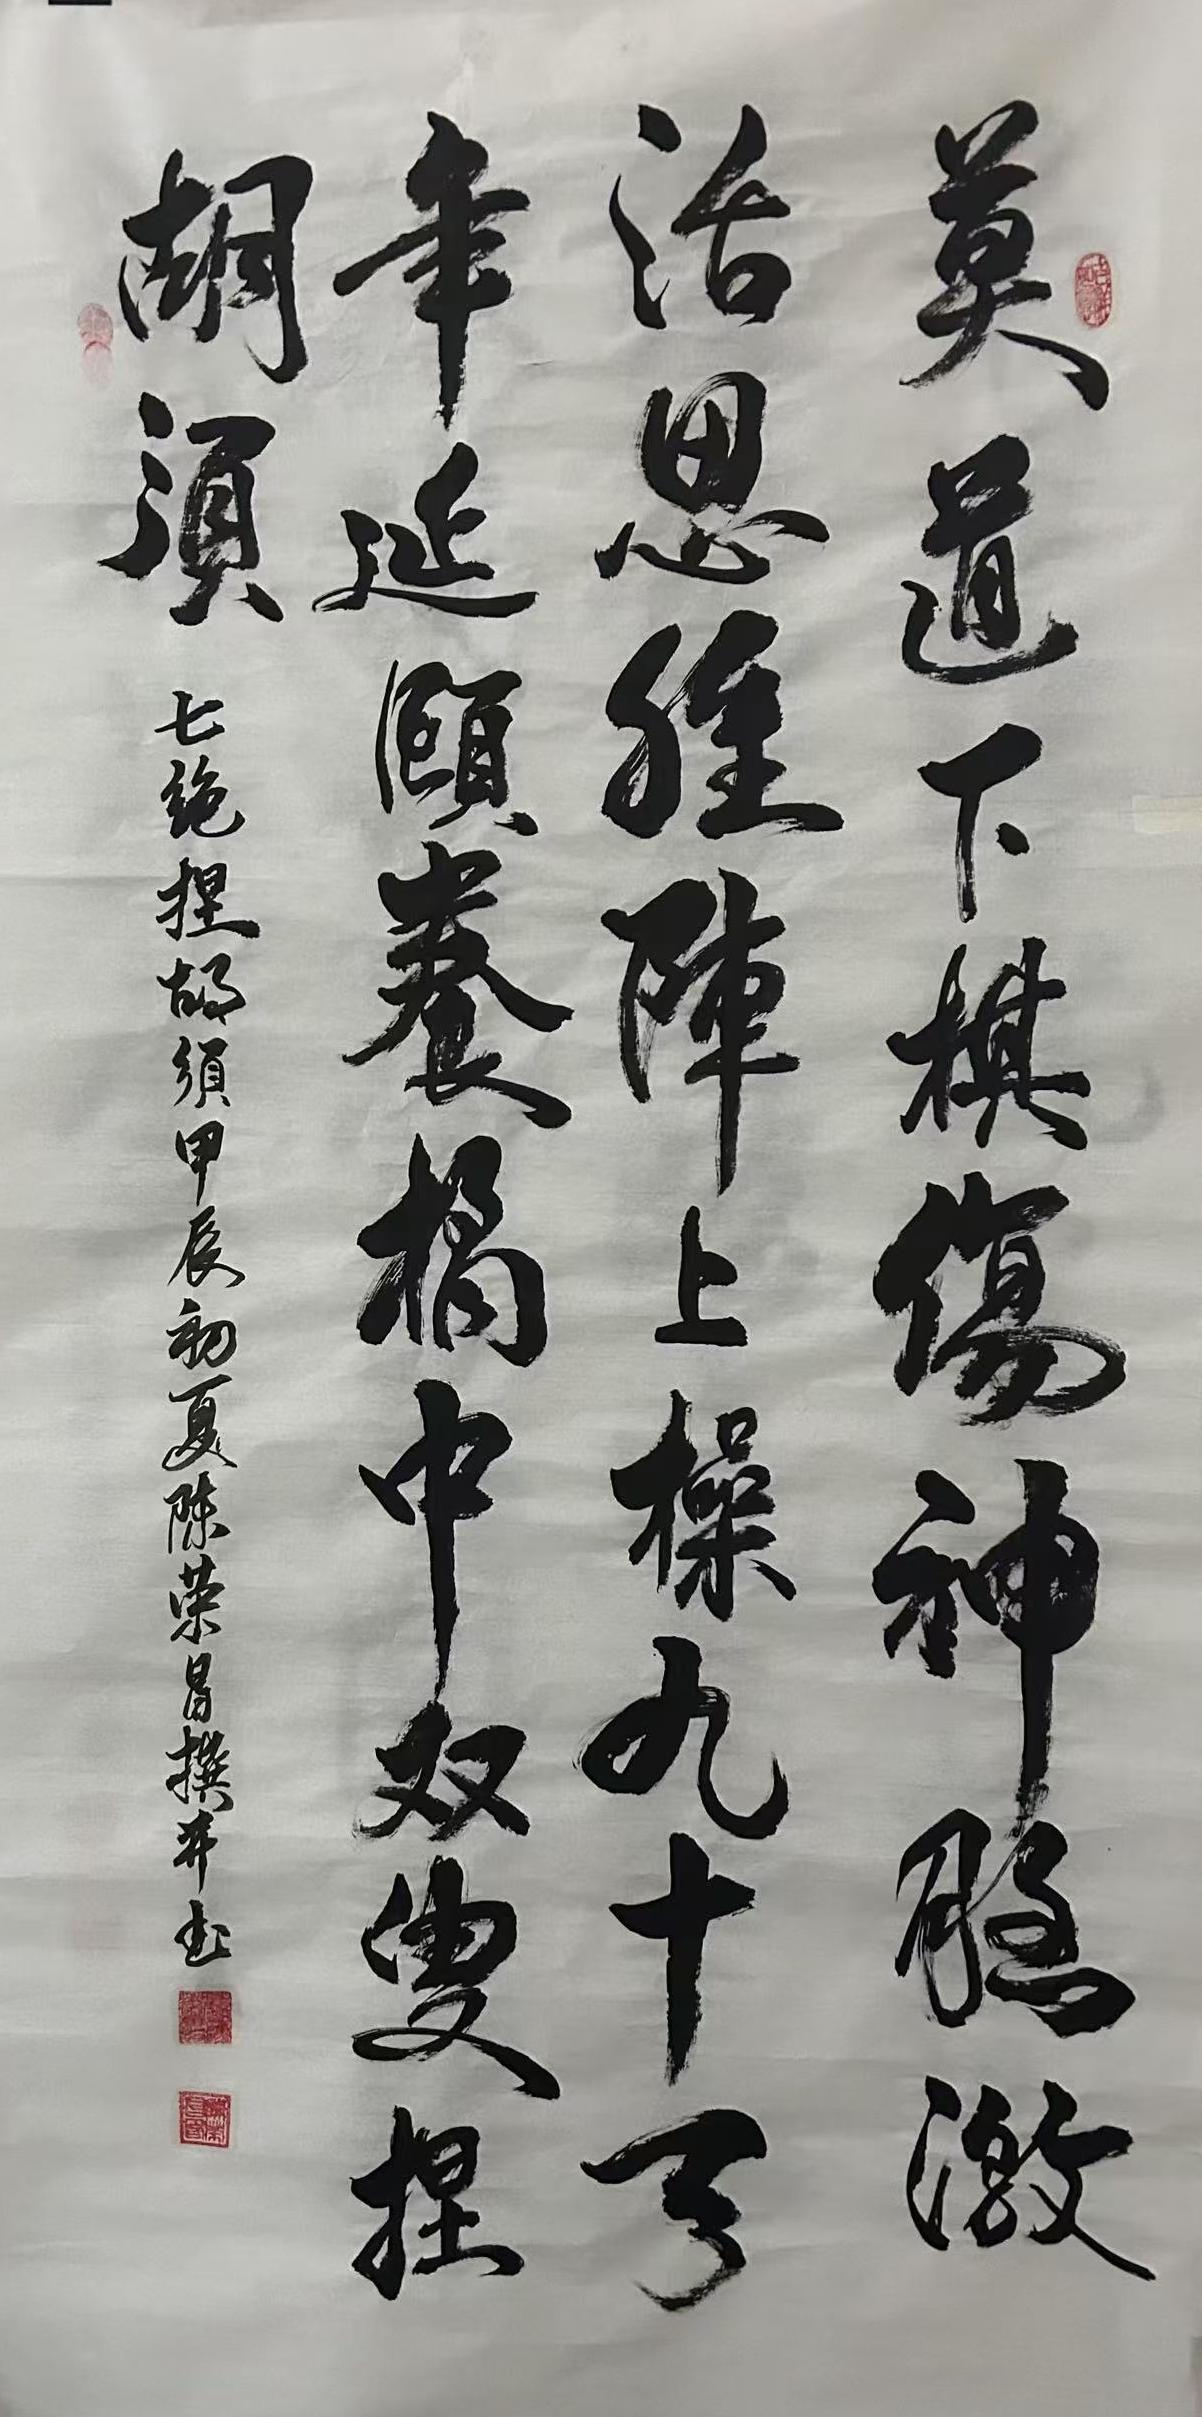 莫道下棋傷神腦激
活思維陣上操九十丐
年延頤養橘中双叟捏
胡須
七絶捏胡須甲辰初夏陈荣昌撰并书